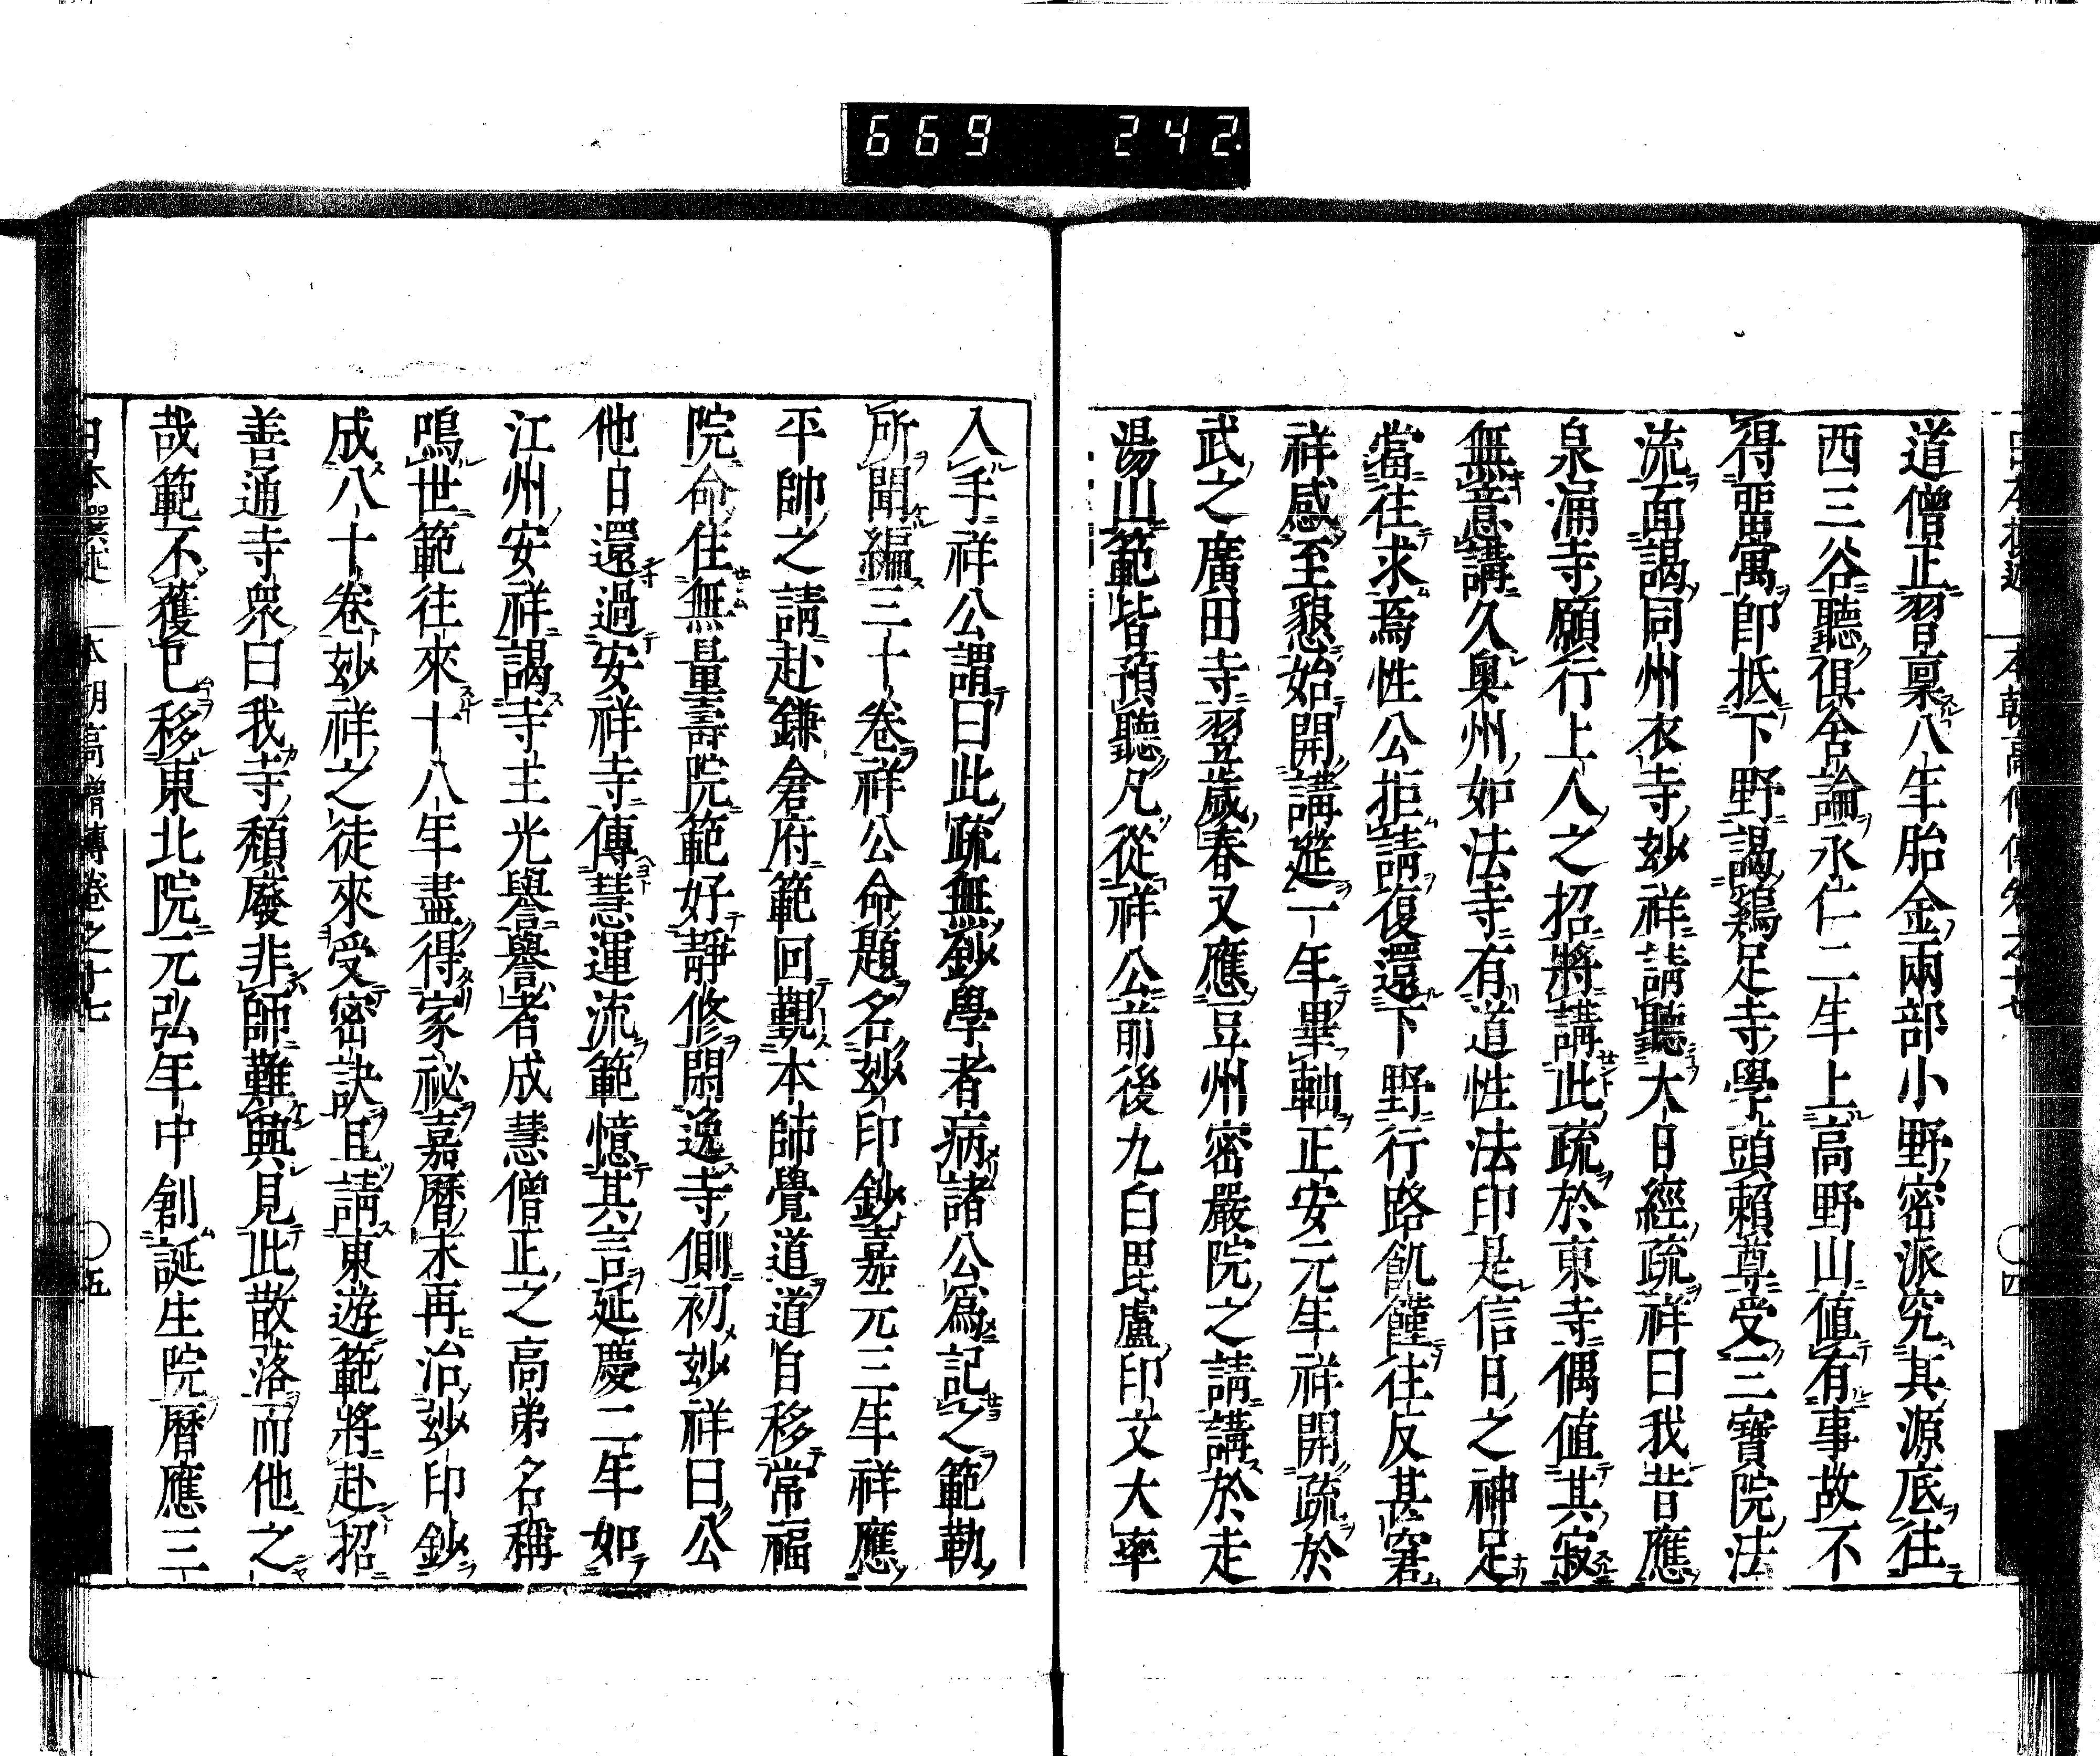 669 242
道僧正習稟八年胎金兩部小野密派究其源底往
西三谷聽俱舍論永仁二年上高野山値有事故不
得畱寓即抵下野謁鷄足寺學頭賴尊受三寶院法
流面謁同州衣寺妙祥請聽大日經疏祥曰我昔應
泉涌寺願行上人之招將講此疏於東寺偶值其寂
無意講久奧州如法寺有道性法印是信日之神足
當往求焉性公拒請復還下野行路飢饉往反甚窘
祥感至懇始開講筵一年畢軸正安元年祥開疏於
武之廣田寺翌歲春又應豆州密嚴院之請講於走
湯山範皆預聽凡從祥公前後九白毘盧印文大率
入手祥公謂曰此疏無鈔學者病諸公爲記之範執
所聞編三十卷祥公命題名玅印鈔嘉元三年祥應
平帥之請赴鎌倉府範回觀本師覺道道自移常福
院命住無量壽院範好靜修閑逸寺側初玅祥曰公
他日還過安祥寺傳慧運流範憶其言延慶二年如
江州安祥謁寺主光譽譽者成慧僧正之高弟名稱
鳴世範往來十八年盡得家祕嘉曆末再治玅印鈔
成八十卷玅祥之徒來受密訣且請東遊範將赴招
善通寺衆曰我寺頹廢非師難興見此散落而他之
哉範不獲已移東北院元弘年中創誕生院曆應三
日本撰述 本朝高僧傳卷之十七 〇五